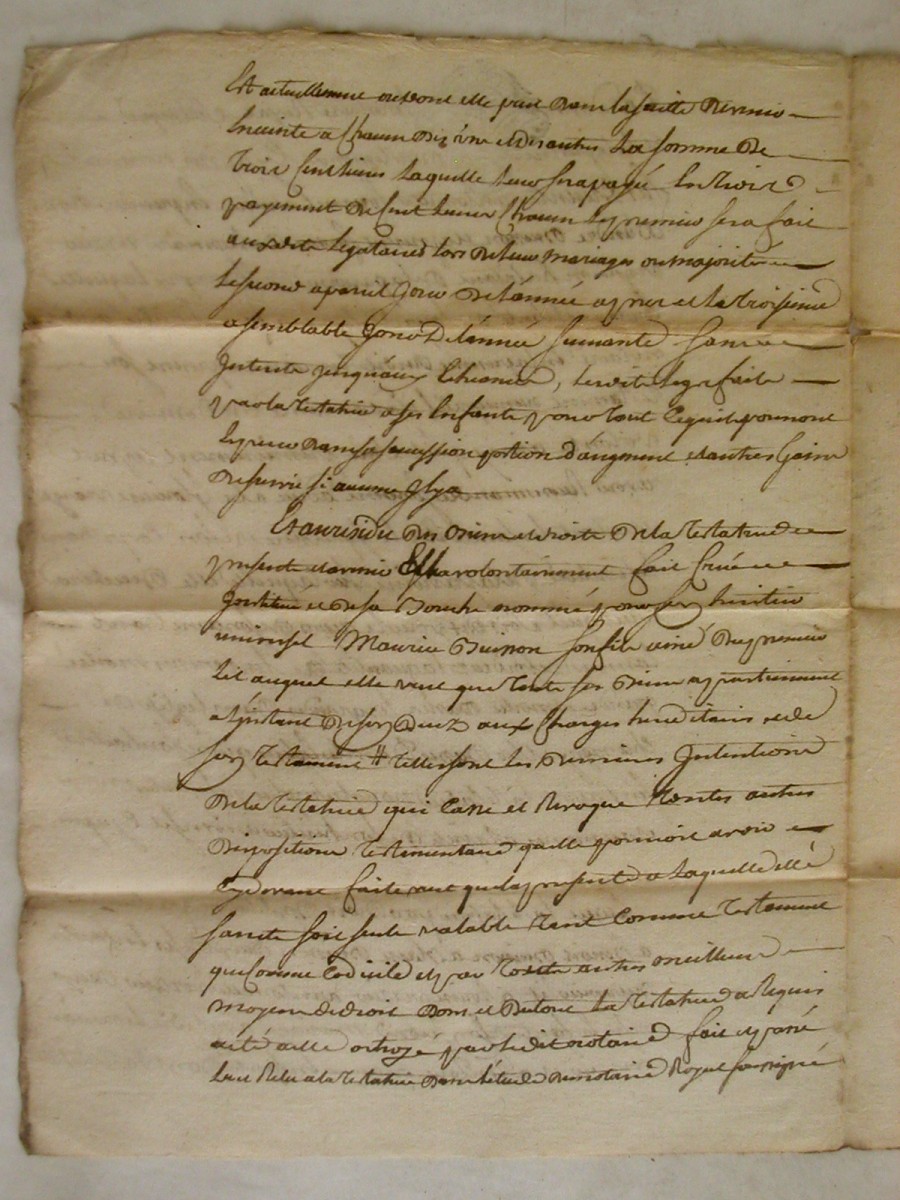 Est actuellement ou dont elle peut dans la suitte devenir
Enceinte a Chacun des uns et des autres La somme de
trois Cent livres Laquelle leur sera payé En trois
payement de Cent livres Chacun Le premier sera fait
auxdits legataires lors de leur mariages ou majorité
le second a pareil Jour de l'année apres et le troisieme
a semblable Jour de l'année suivante sans
Interets jusqu'aux Echeances, lesdits legs faits
par la testatrice a ses Enfants pour tout Ce quils pourront
dans sa succession portion d'augment et autres Gains
de survie si aucuns Il y a
Et au residu des biens et droits de la testatrice
present et avenir Elle a volontairement fait Créé
Institué et de sa bouche nommé pour son heritier
universel Maurice Buisson son fils ainé du premier
Lit auquel elle veut que touts ses biens appartiennent
a l'instant de son decez aux Charges hereditaires et de
son testament telles sont les dernieres Intentions
de la testatrice qui Casse et Revoque toutes autres
dispositions testamentaires quelle pourroit avoir
Cydevant faites veut que la presente a Laquelle elle
soit seule valable tant Comme testament
que Comme Codicile et par toutes autres meilleurs
moyens de droit Dont et Dutout La testatrice a Requis
acte a elle octroyé par ledit notaire fait et passé
Lu et Relu a la testatrice dans l'etude du notaire Royal soussigné